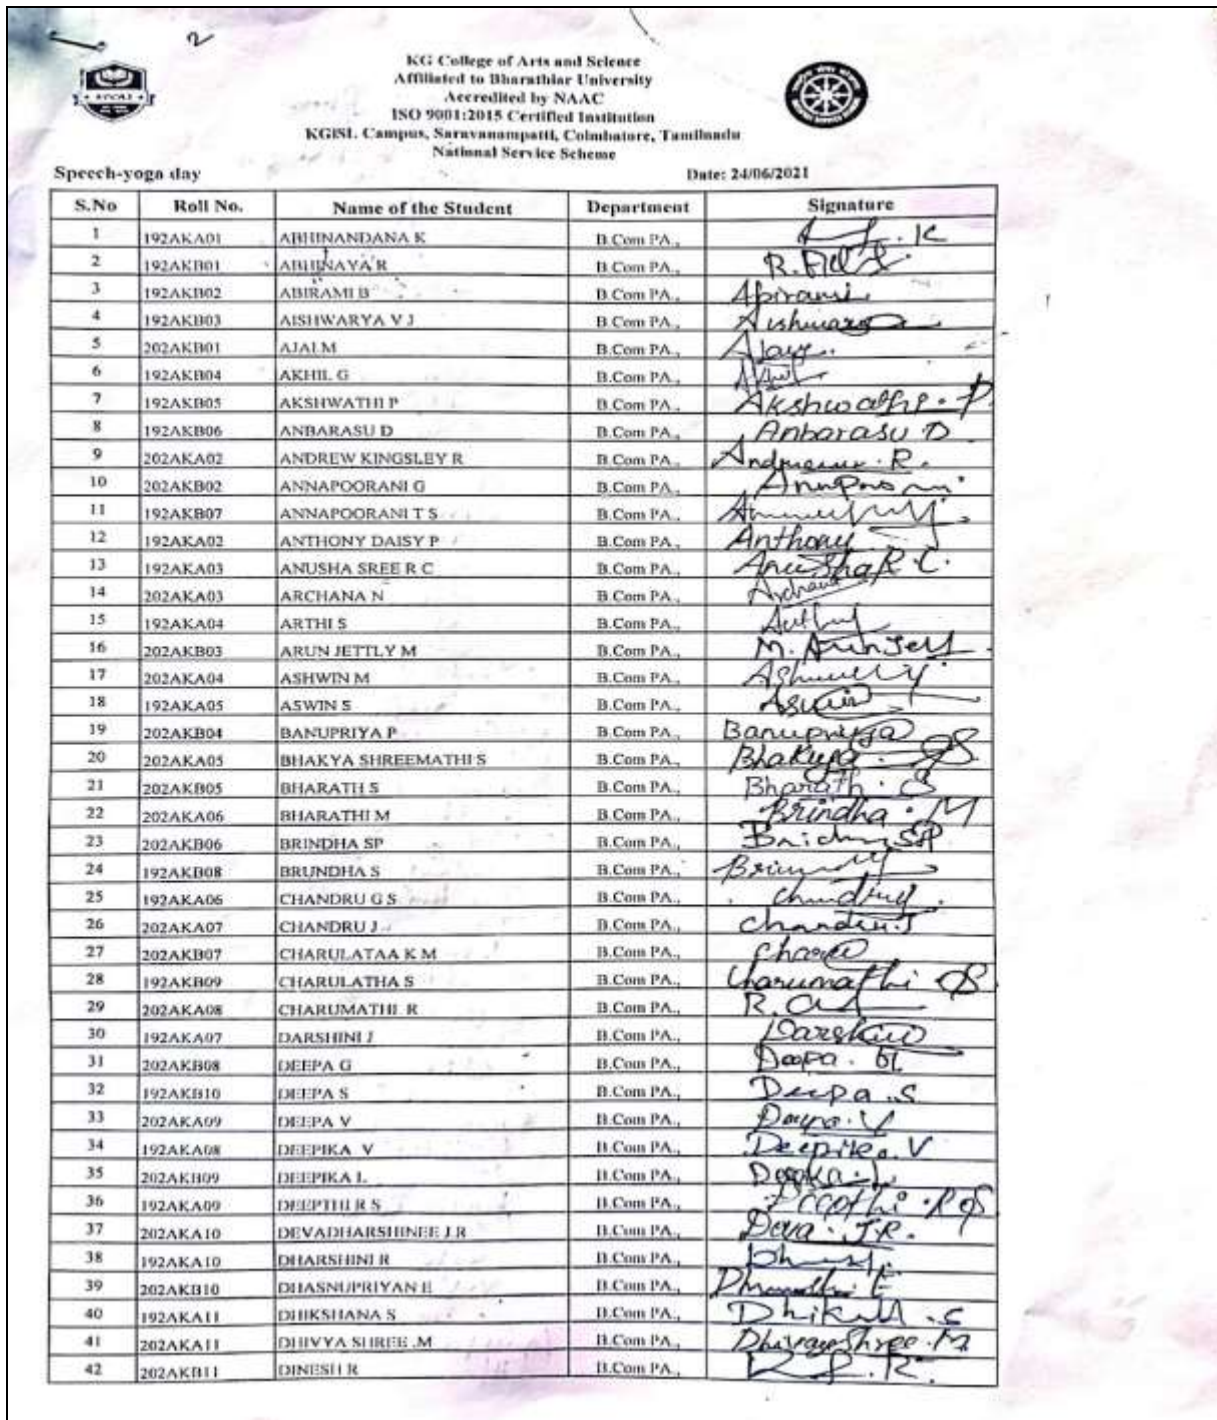 2
KG College of Arts and Science
Affiliated to Bharathiar University
Accredited by NAAC
ISO 9001:2015 Certified Institution
KGISL Campus, Saravanampatti, Coimbatore, Tamilnadu
National Service Scheme
Speech-yoga day Date: 24/06/2021
S.No Roll No. Name of the Student Department Signature
1 192AKA01 ABHINANDANA K B.Com PA.,
2 192AKB01 ABHINAYA R B.Com PA.,
3 192AKB02 ABIRAMI B B.Com PA., Abirami
4 192AKB03 AISHWARYA V J B.Com PA., Aishwarya
5 202AKB01 AJAI.M B.Com PA.,
6 192AKB04 AKHIL G B.Com PA.,
7 192AKB05 AKSHWATHI P B.Com PA., Akshwathi. P
8 192AKB06 ANBARASU D B.Com PA., Anbarasu D
9 202AKA02 ANDREW KINGSLEY R B.Com PA.,
10 202AKB02 ANNAPOORANI G B.Com PA.,
11 192AKB07 ANNAPOORANI T S B.Com PA.,
12 192AKA02 ANTHONY DAISY P B.Com PA., Anthony
13 192AKA03 ANUSHA SREE R C B.Com PA., Anusha R.C.
14 202AKA03 ARCHANA N B.Com PA., Archana
15 192AKA04 ARTHI S B.Com PA.,
16 202AKB03 ARUN JETTLY M B.Com PA.,
17 202AKA04 ASHWIN M B.Com PA.,
18 192AKA05 ASWIN S B.Com PA.,
19 202AKB04 BANUPRIYA P B.Com PA., Banupriya
20 202AKA05 BHAKYA SHREEMATHI S B.Com PA., Bhakya
21 202AKB05 BHARATH S B.Com PA., Bharath. S
22 202AKA06 BHARATHI M B.Com PA., Brindha. M
23 202AKB06 BRINDHA SP B.Com PA.,
24 192AKB08 BRUNDHA S B.Com PA.,
25 192AKA06 CHANDRU G S B.Com PA.,
26 202AKA07 CHANDRU J B.Com PA., Chandru.J
27 202AKB07 CHARULATAA K M B.Com PA.,
28 192AKB09 CHARULATHA S B.Com PA., Charumathi
29 202AKA08 CHARUMATHI. R B.Com PA.,
30 192AKA07 DARSHINI J B.Com PA., Darshini
31 202AKB08 DEEPA G B.Com PA., Deepa. G
32 192AKB10 DEEPA S B.Com PA., Deepa.S
33 202AKA09 DEEPA V B.Com PA., Deepa.V
34 192AKA08 DEEPIKA V B.Com PA., Deepika.V
35 202AKB09 DEEPIKA L B.Com PA.,
36 192AKA09 DEEPTHI R S B.Com PA., Deepthi.R S
37 202AKA10 DEVADHARSHINEE J.R B.Com PA., Deva. J.R.
38 192AKA10 DHARSHINI R B.Com PA.,
39 202AKB10 DHASNUPRIYAN E B.Com PA.,
40 192AKA11 DHIKSHANA S B.Com PA.,
41 202AKA11 DHIVYA SHREE .M B.Com PA., Dhivyashree.M
42 202AKB11 DINESH R B.Com PA.,